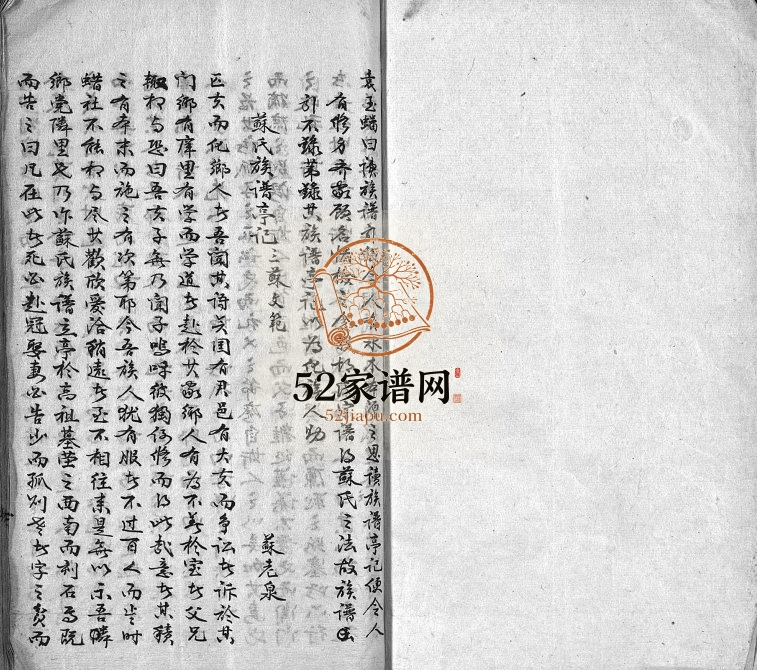 袁玉蟠曰讀族譜令人有水木之思讀族譜亭記便令人
有修身齊家顧名惜檢之家譜得蘇氏之法故族譜
部不錄第錄其族譜亭記以為化鄉人助
蘇氏族譜亭記 三蘇文範 蘇老泉
匹夫而化鄉人者吾聞其語矣國有君邑有大夫而爭訟者訴於其
門鄉有庠里有学而学道者赴於其家鄉人有為不善於室者父兄
輒相与恐曰吾夫子無乃聞子嗚呼彼獨何修而得此哉意者其積
之有本末而施之有次第耶今吾族人犹有服者不过百人而歲时
蜡社不能相与尽其歡欣爱洽稍遠者至不相往来是無以示吾隣
鄉党隣里也乃作蘇氏族譜立亭於高祖墓塋之西南而刻石焉既
而告之曰凡在此者死必赴冠娶妻必告少而孤则老者字之貧而
52家谱网
52jiapu.com